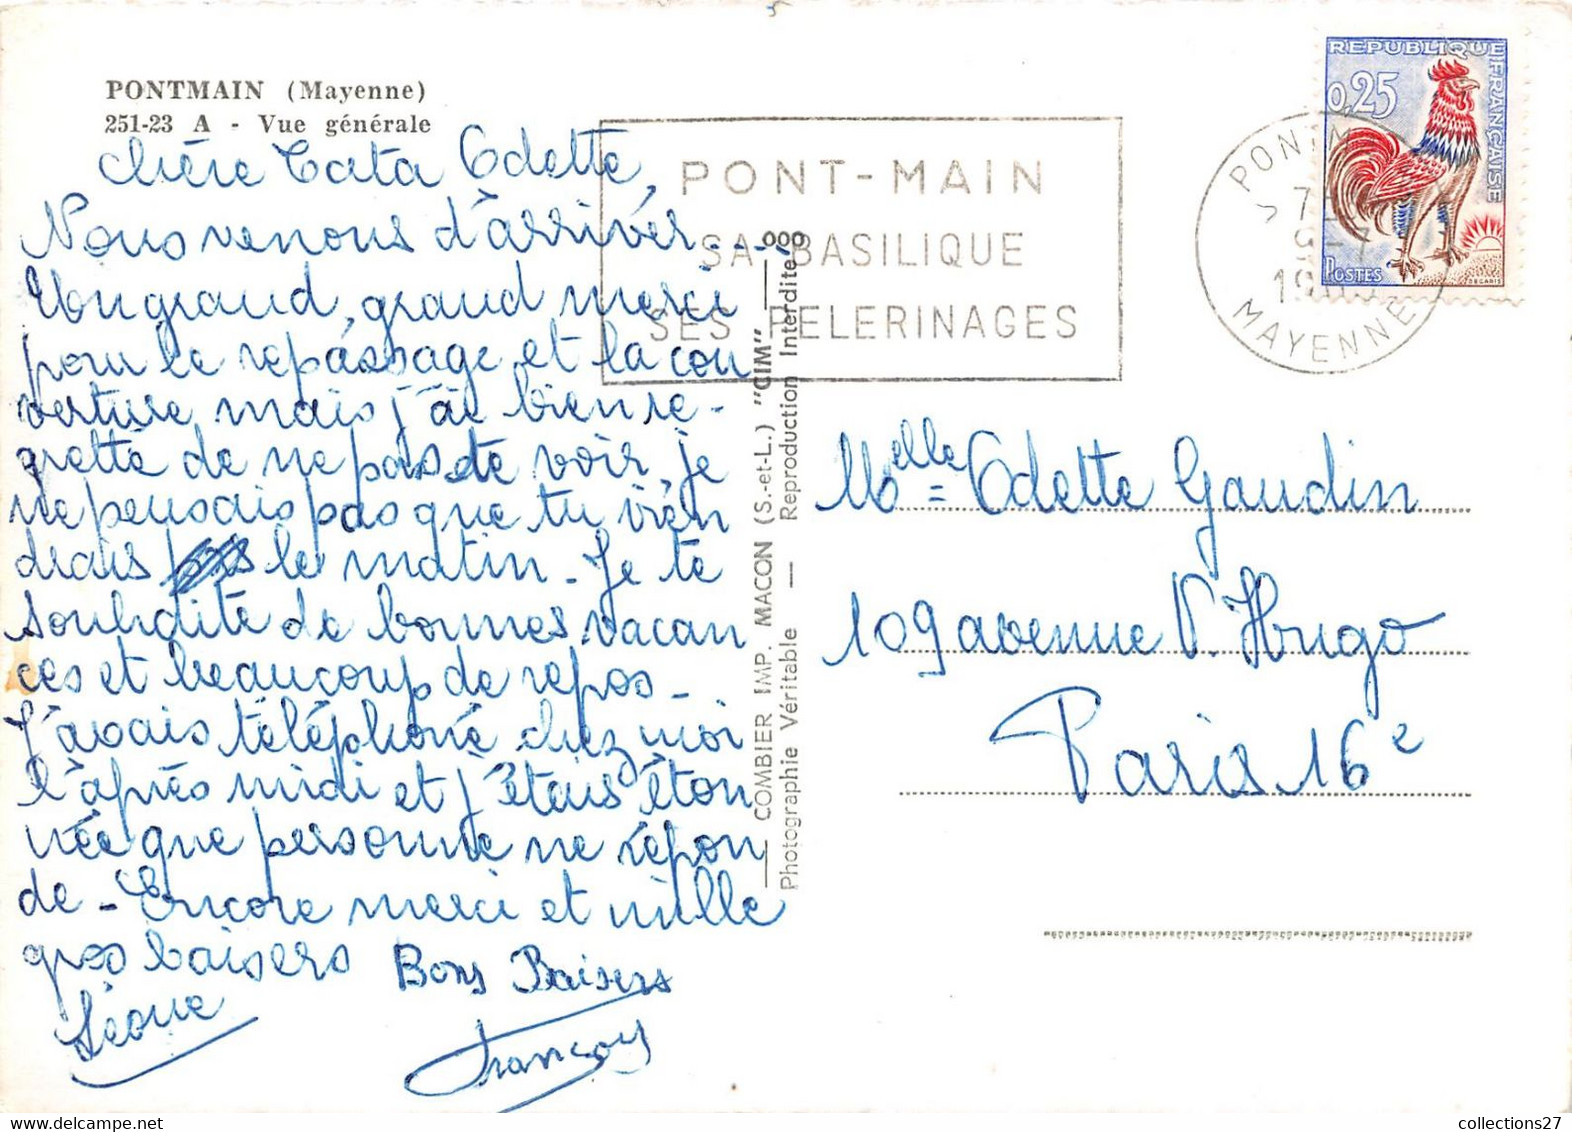 PONTMAIN (Mayenne)
251-23 A - Vue générale
chère Tata Odette,
Nous venons d'arriver...
Un grand, grand merci
pour le repassage et la cou
verture mais j'ai bien re-
gretté de ne pas te voir, je
ne pensais pas que tu vien
drais le matin - Je te
souhaite de bonnes vacan
ces et beaucoup de repos -
J'avais téléphoné chez moi
l'après midi et j'étais éton
née que personne ne répon
de - Encore merci et mille
gros baisers
Bons Baisers
François
PONT-MAIN
SA BASILIQUE
SES PELERINAGES
COMBIER IMP. MACON (S.-et-L.) "CIM"
Photographie Véritable — Reproduction Interdite
REPUBLIQUE FRANÇAISE
0,25
POSTES
DECARIS
MAYENNE
Melle = Odette Gaudin
109 avenue V. Hugo
Paris 16e
collections27